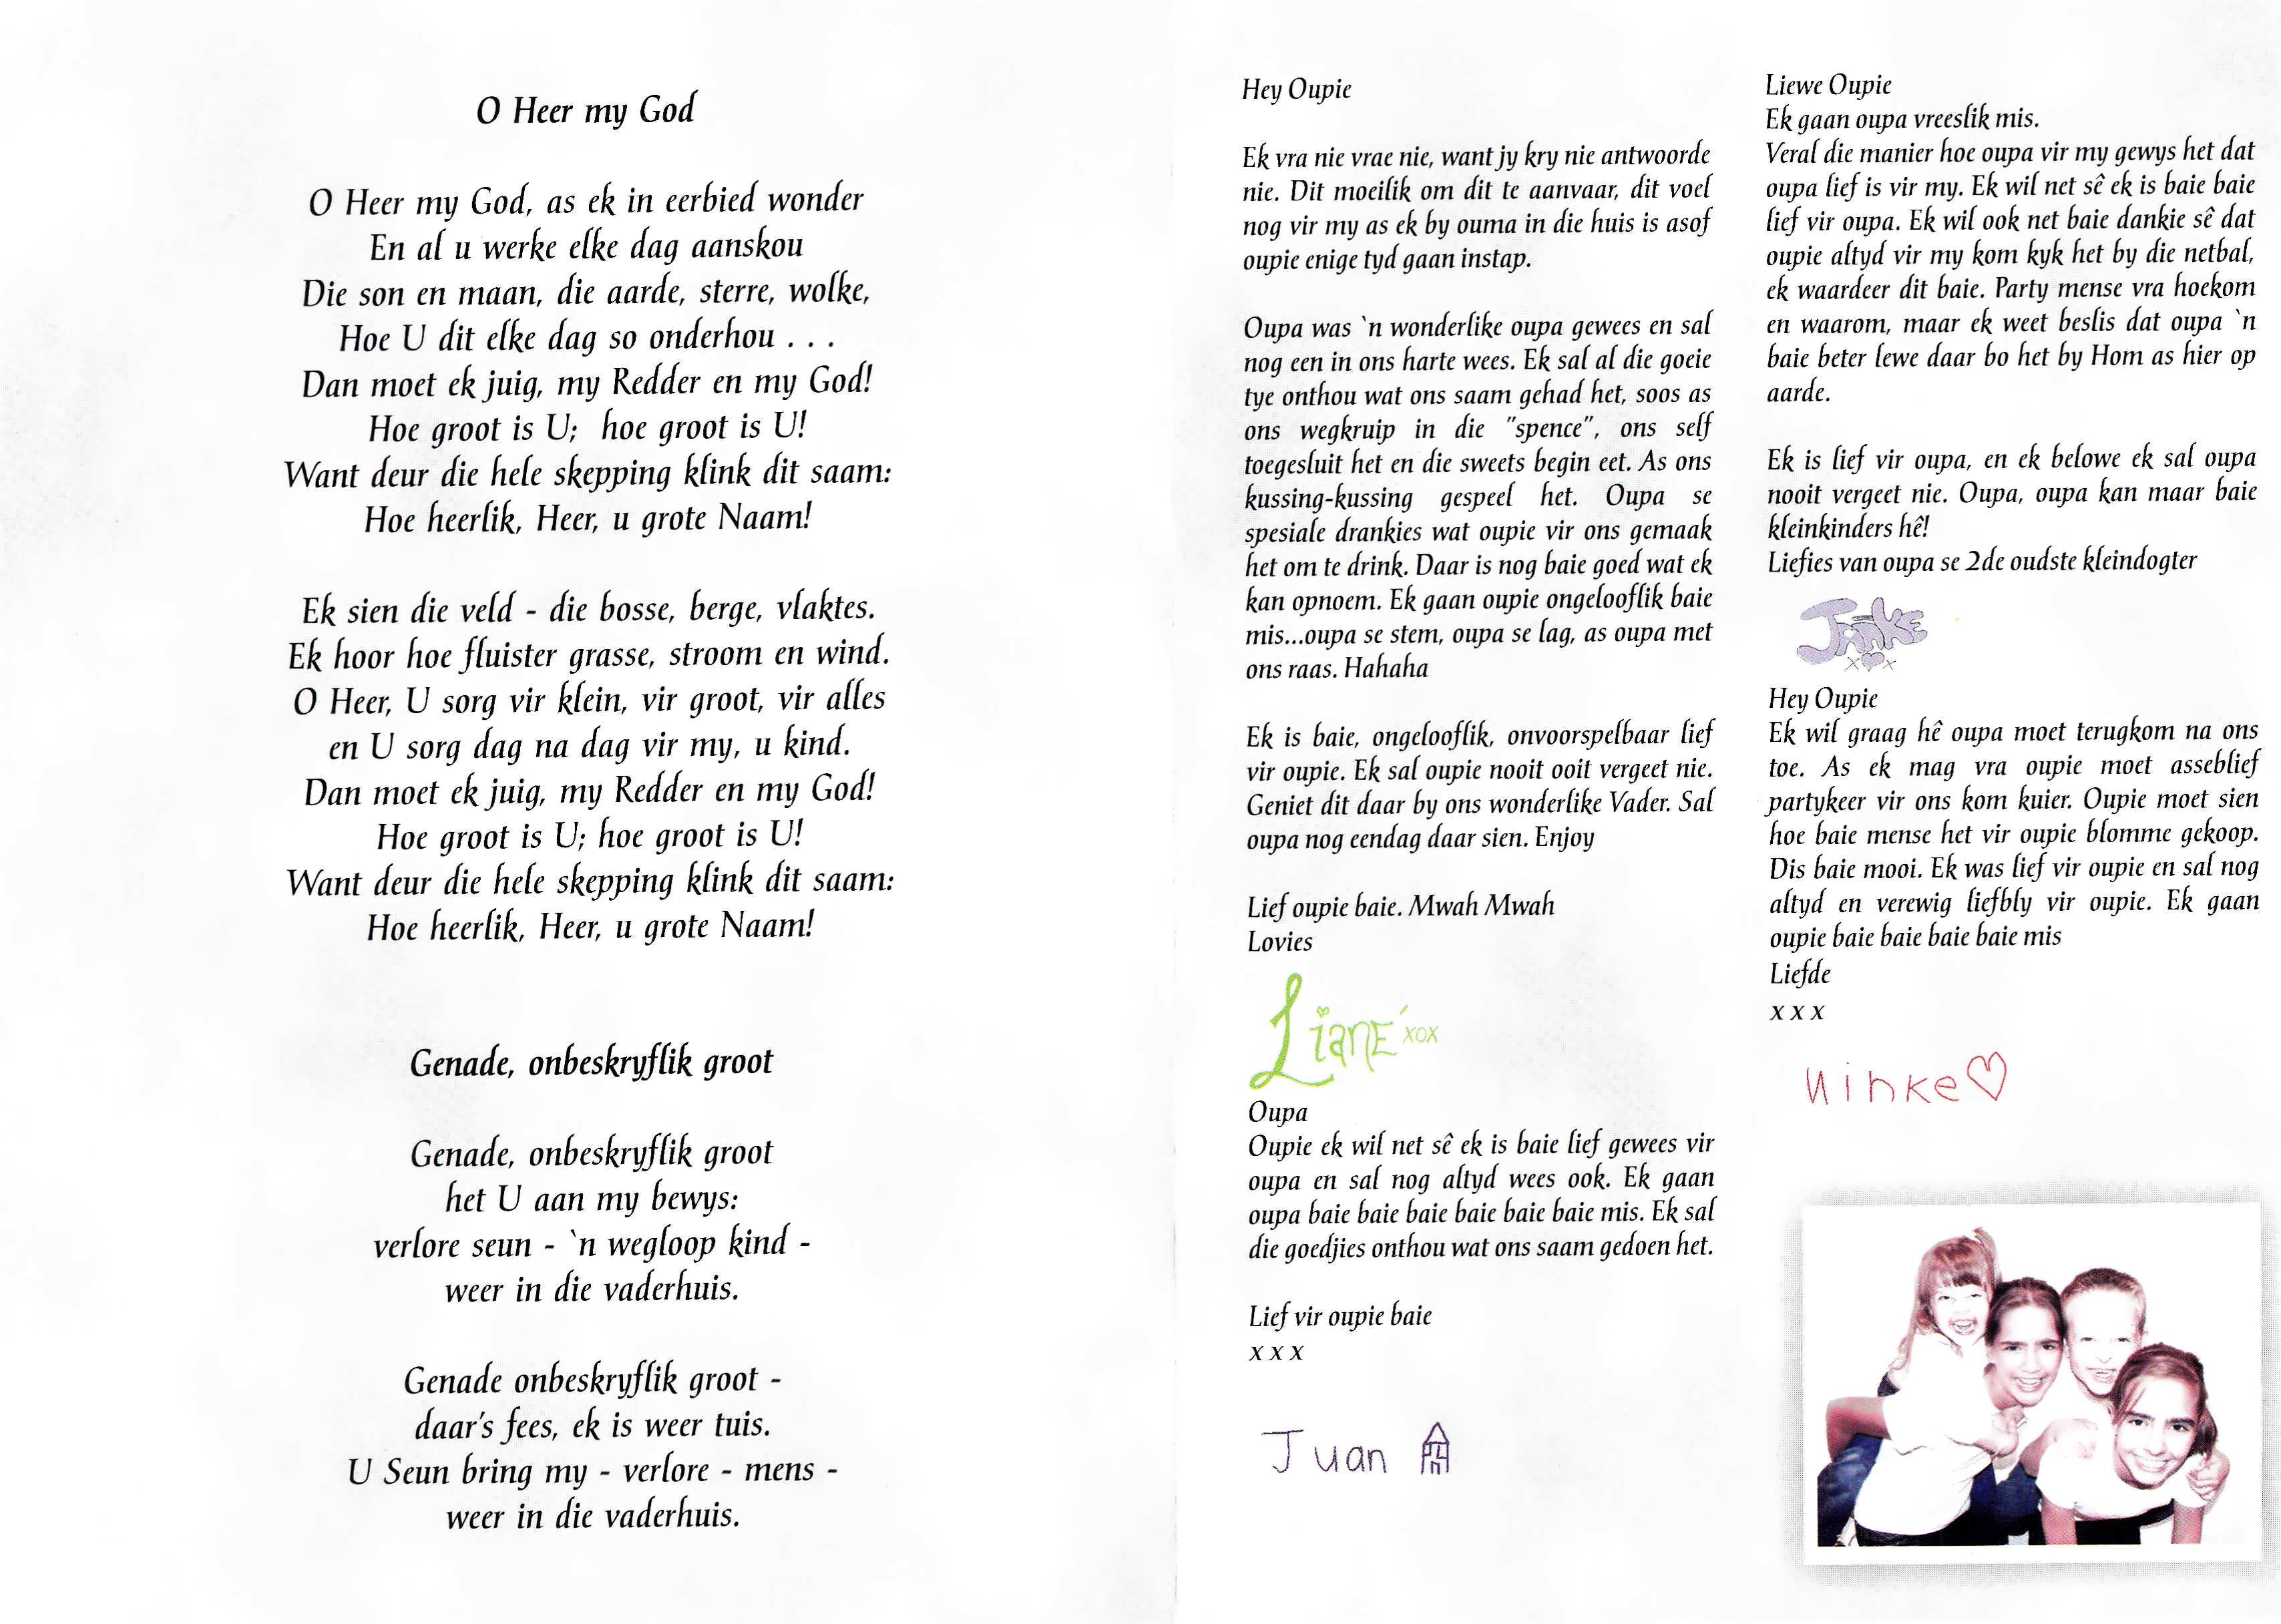 O Heer my God
O Heer my God, as ek in eerbied wonder
En al u werke elke dag aanskou
Die son en maan, die aarde, sterre, wolke,
Hoe U dit elke dag so onderhou . . .
Dan moet ek juig, my Redder en my God!
Hoe groot is U; hoe groot is U!
Want deur die hele skepping klink dit saam:
Hoe heerlik, Heer, u grote Naam!
Ek sien die veld - die bosse, berge, vlaktes.
Ek hoor hoe fluister grasse, stroom en wind.
O Heer, U sorg vir klein, vir groot, vir alles
en U sorg dag na dag vir my, u kind.
Dan moet ek juig, my Redder en my God!
Hoe groot is U; hoe groot is U!
Want deur die hele skepping klink dit saam:
Hoe heerlik, Heer, u grote Naam!
Genade, onbeskryflik groot
Genade, onbeskryflik groot
het U aan my bewys:
verlore seun - `n wegloop kind -
weer in die vaderhuis.
Genade onbeskryflik groot -
daar's fees, ek is weer tuis.
U Seun bring my - verlore - mens -
weer in die vaderhuis.
Hey Oupie
Ek vra nie vrae nie, want jy kry nie antwoorde
nie. Dit moeilik om dit te aanvaar, dit voel
nog vir my as ek by ouma in die huis is asof
oupie enige tyd gaan instap.
Oupa was `n wonderlike oupa gewees en sal
nog een in ons harte wees. Ek sal al die goeie
tye onthou wat ons saam gehad het, soos as
ons wegkruip in die "spence", ons self
toegesluit het en die sweets begin eet. As ons
kussing-kussing gespeel het. Oupa se
spesiale drankies wat oupie vir ons gemaak
het om te drink. Daar is nog baie goed wat ek
kan opnoem. Ek gaan oupie ongelooflik baie
mis...oupa se stem, oupa se lag, as oupa met
ons raas. Hahaha
Ek is baie, ongelooflik, onvoorspelbaar lief
vir oupie. Ek sal oupie nooit ooit vergeet nie.
Geniet dit daar by ons wonderlike Vader. Sal
oupa nog eendag daar sien. Enjoy
Lief oupie baie. Mwah Mwah
Lovies
Liané xox
Oupa
Oupie ek wil net sê ek is baie lief gewees vir
oupa en sal nog altyd wees ook. Ek gaan
oupa baie baie baie baie baie baie mis. Ek sal
die goedjies onthou wat ons saam gedoen het.
Lief vir oupie baie
x x x
Juan
Liewe Oupie
Ek gaan oupa vreeslik mis.
Veral die manier hoe oupa vir my gewys het dat
oupa lief is vir my. Ek wil net sê ek is baie baie
lief vir oupa. Ek wil ook net baie dankie sê dat
oupie altyd vir my kom kyk het by die netbal,
ek waardeer dit baie. Party mense vra hoekom
en waarom, maar ek weet beslis dat oupa `n
baie beter lewe daar bo het by Hom as hier op
aarde.
Ek is lief vir oupa, en ek belowe ek sal oupa
nooit vergeet nie. Oupa, oupa kan maar baie
kleinkinders hê!
Liefies van oupa se 2de oudste kleindogter
Janke
x x
Hey Oupie
Ek wil graag hê oupa moet terugkom na ons
toe. As ek mag vra oupie moet asseblief
partykeer vir ons kom kuier. Oupie moet sien
hoe baie mense het vir oupie blomme gekoop.
Dis baie mooi. Ek was lief vir oupie en sal nog
altyd en verewig liefbly vir oupie. Ek gaan
oupie baie baie baie baie mis
Liefde
x x x
Ninke